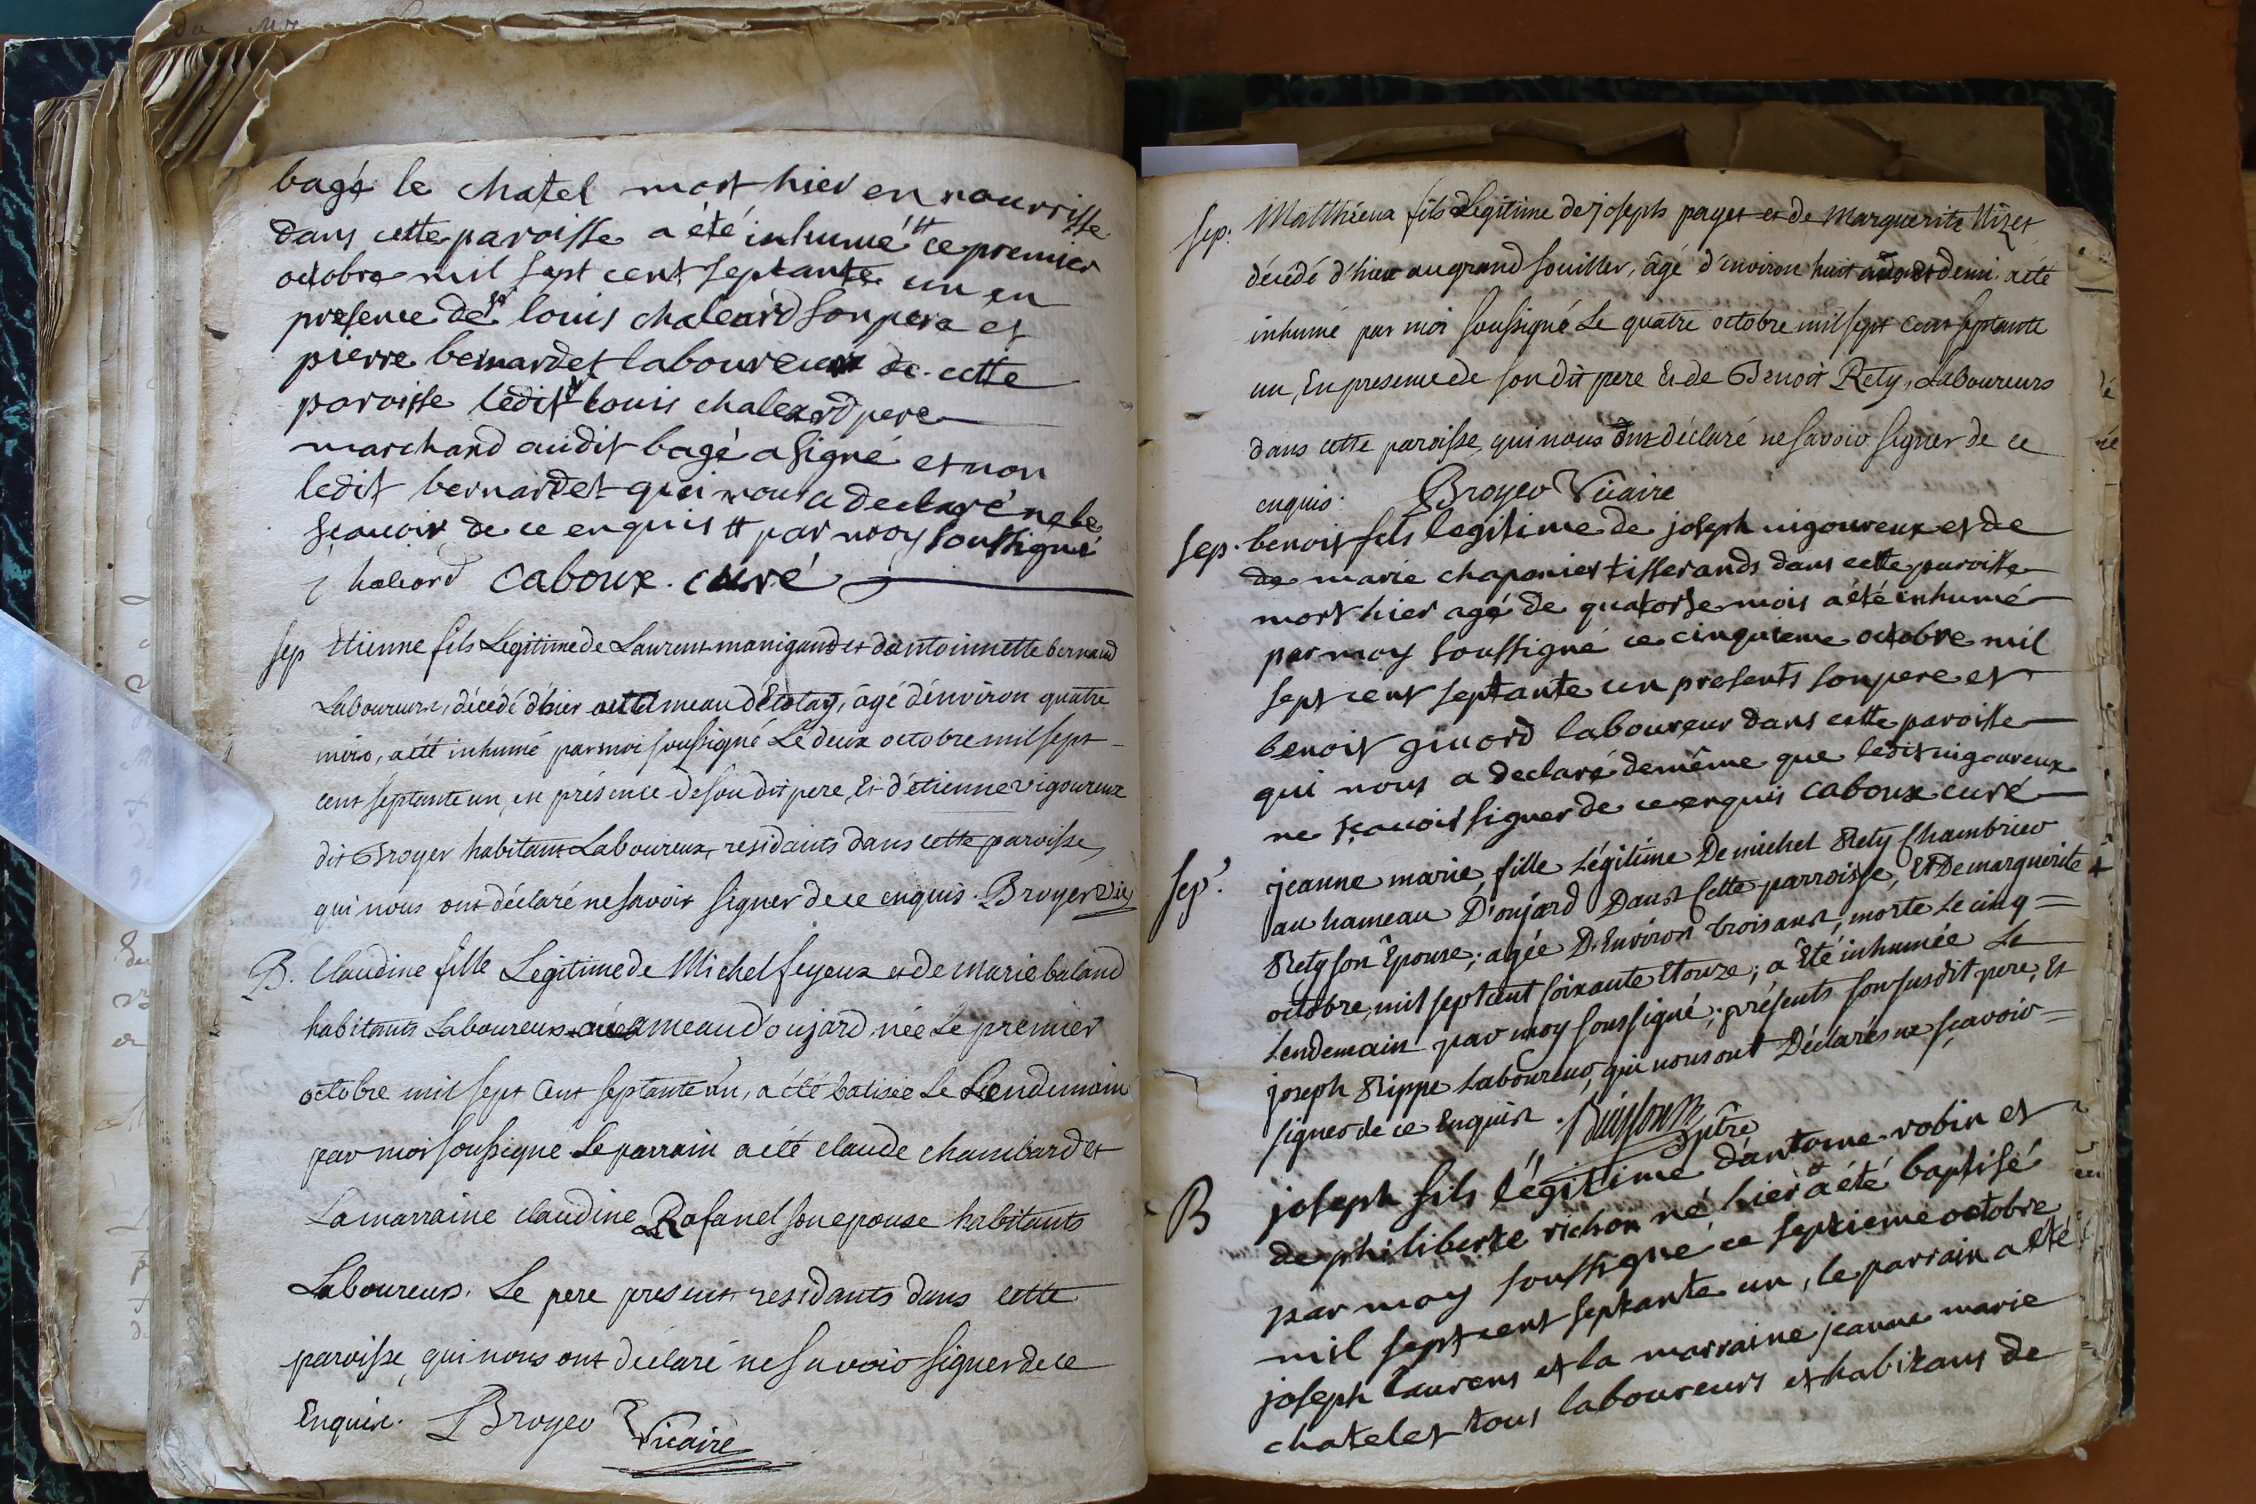 bagé le chatel mort hier en nourrisse
dans cette paroisse a été inhumé # ce premier
octobre mil sept cent septante un en
presence de sr louis chaleard son pere et
pierre bernardet laboureur de cette
paroisse ledit sr louis chaleard pere
marchand audit bagé a signé et non
ledit bernardet qui nous a declaré ne le
sçauoir de ce enquis # par moy soussigné
chaleard caboux. curé
sep Etienne fils Legitime de Laurent manigand et d'antoinnette bernard
Laboureurs, décédé d'hier au hameau d'Etolay, âgé d'environ quatre
mois, a été inhumé par moi soussigné Le deux octobre mil sept
cent septante un, en présence de son dit pere, Et d'étienne vigoureux
dit Broyer habitant Laboureux, residants dans cette paroisse,
qui nous ont déclaré ne savoir signer de ce enquis. Broyer Vic
B. Claudine fille Legitime de Michel feyeux et de Marie baland
habitants Laboureux au hameau d'oujard née Le premier
octobre mil sept Cent septante un, a été batisée Le Lendemain
par moi soussigné Le parrain a été claude chambard et
La marraine claudine Rafanel son epouse habitants
Laboureurs. Le pere present residants dans cette
paroisse, qui nous ont déclaré ne savoir signer de ce
Enquis. Broyer Vicaire
sep. Matthieu fils Legitime de joseph payet et de Marguerite Nizet
décédé d'hier au grand souiller, âgé d'environ huit ans et demi a été
inhumé par moi soussigné Le quatre octobre mil sept Cent septante
un, En presence de son dit pere Et de Benoit Rety, Laboureurs
dans cette paroisse, qui nous ont déclaré ne savoir signer de ce
enquis. Broyer Vicaire
sep. benoit fils legitime de joseph uigoureux et de
de marie chaponier tisserands dans cette paroisse
mort hier agé de quatorse mois a été inhumé
par moy soussigné ce cinquieme octobre mil
sept cent septante un presents son pere et
benoit guiord laboureur dans cette paroisse
qui nous a declaré demême que ledit uigoureux
ne sçauoir signer de ce enquis caboux curé
sep. jeanne marie, fille Légitime De michel Rety Chambrier
au hameau D'oujard Dans Cette parroisse, Et De marguerite
Rety son Epouse; agée D'Environ trois ans, morte Le cinq =
octobre, mil sept cent soixante Etonze; a Eté inhumée Le
Lendemain par moy soussigné; présents son susdit pere, Et
joseph Rippe Laboureur, qui nous ont Déclarés ne sçavoir =
signer de ce Enquis. Buisson ptre
B joseph fils légitime d'antome robin et
de philiberte richon né hier a été baptisé
par moy soussigné ce septieme octobre
mil sept cent septante un, le parrain a été
joseph laurent et la marraine jeanne marie
chatelet tous laboureurs et habitans de